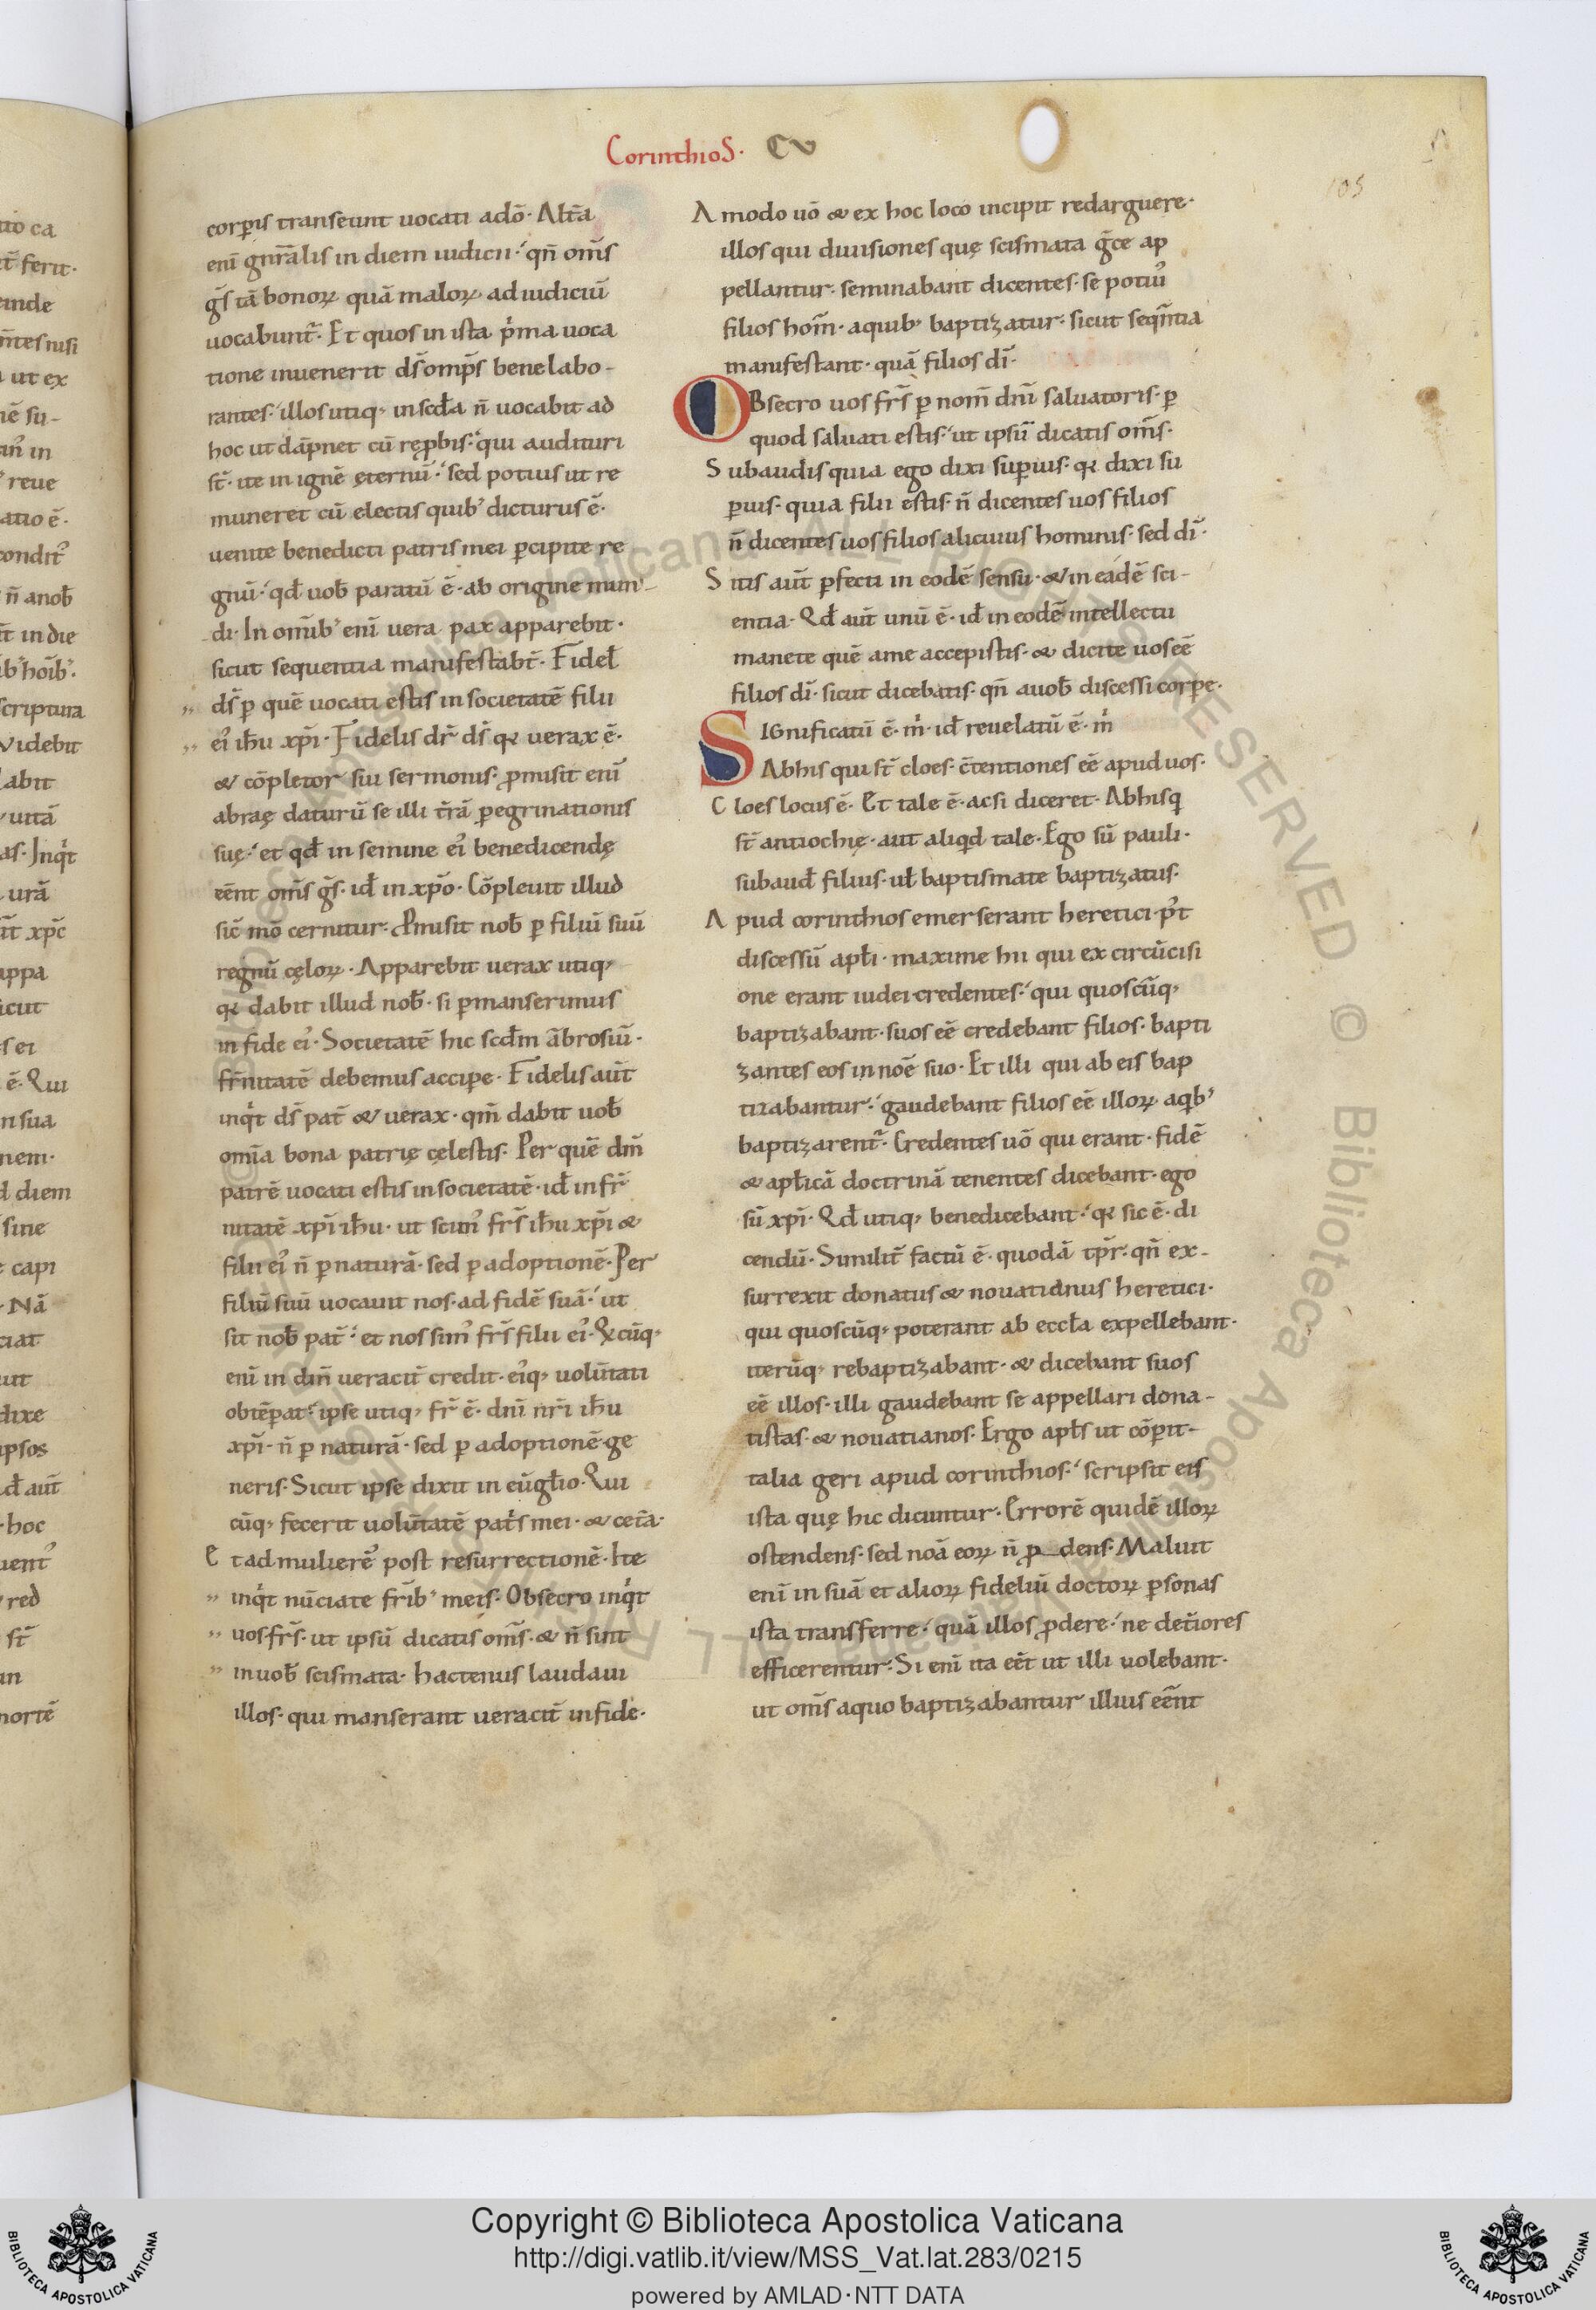 Corinthios· CV
105
corꝑis transeunt uocati addō· Alt̄a
enī gn̄ralis in diem iudicii· qn̄ om̄s
ḡs tā bonoꝝ quā maloꝝ ad iudiciū
uocabunt᷒· Et quos in ista p̓ma uoca
tione inuenerit ds̄ omp̄s bene labo-
rantes· illos utiq; in scd̄a n̄ uocabit ad
hoc ut dāpnet cū rep̱bis· qui audituri
st̄· ite in ignē ęternū· sed potius ut re
muneret cū electis quib᷒ dicturus ē·
uenite benedicti patris mei ꝑcipite re
gnū· qd̄ uob̄ paratū ē· ab origine mun-
di· In om̄ib᷒ enī uera pax apparebit·
sicut sequentia manifestabt̄· Fidel̄
ds̄ ꝑ quē uocati estis in societatē filii
ei᷒ ih̄u xp̄i· Fidelis dr̄ ds̄ qꝛ uerax ē·
& cōpletor sui sermonis· ꝓmisit enī
abrae daturū se illi t̄rā ꝑegrinationis
suę· et qd̄ in semine ei᷒ benedicendę
eēnt om̄s ḡs· id̄ in xp̄o· Cōpleuit illud
sic̄ mō cernitur· Ꝓmisit nob̄ ꝑ filiū suū
regnū cęloꝝ· Apparebit uerax utiq;
qꝛ dabit illud nob̄· si ꝑmanserimus
in fide ei᷒· Societatē hic scd̄m ābrosiū·
fr̄nitatē debemus accipe· Fidelis aūt
inq̓t ds̄ pat̄ & uerax· qm̄ dabit uob̄
om̄ia bona patrię cęlestis· Per quē dm̄
patrē uocati estis in societatē· id̄ in fr̄
nitatē xp̄i ih̄u· ut scim᷒ fr̄s ih̄u xp̄i &
filii ei᷒ n̄ ꝑ naturā· sed ꝑ adoptionē· Per
filiū suū uocauit nos· ad fidē suā· ut
sit nob̄ pat̄· et nos sim᷒ fr̄s filii ei᷒· Qcūq;
enī in dm̄ ueracit̄ credit· ei᷒q; uolūtati
obtēpat̄· ipse utiq; fr̄ ē· dn̄i nr̄i ih̄u
xp̄i· n̄ ꝑ naturā· sed ꝑ adoptionē· ge
neris· Sicut ipse dixit in eūgl̄io· Qui
cūq; fecerit uolūtatē pat̓s mei· & cet̄a·
Et ad mulierē᷒ post resurrectionē· Ite
inq̓t nūciate fr̄ib᷒ meis· Obsecro inq̓t
uos fr̄s· ut ipsū dicatis om̄s· & n̄ sint
in uob̄ scismata· hactenus laudaui
illos· qui manserant ueracit̄ in fide·
A modo uō & ex hoc loco incipit redarguere·
illos qui diuisiones quę scismata ḡce ap
pellantur· seminabant dicentes· se poti᷒
filios hom̄· a quib᷒ baptizatur· sicut seqn̄tia
manifestant· quā filios dī·
OBsecro uos fr̄s ꝑ nom̄ dn̄i saluatoris· ꝑ
quod saluati estis· ut ipsū dicatis om̄s·
Subaudis quia ego dixi suꝑius· qꝛ dixi su
ꝑius· quia filii estis· n̄ dicentes uos filios
n̄ dicentes uos filios alicuius hominis· sed dī·
Sitis aūt ꝑfecti in eodē sensu· & in eadē sci-
entia· Qd̄ aūt unū ē· id̄ in eodē intellectu
manete quē a me accepistis· & dicite uos eē
filios dī· sicut dicebatis· qn̄ a uob̄ discessi corꝑe·
SIGnificatū ē· m̓· id̄ reuelatū ē· m̓
Ab his qui st̄ cloes· c̄tentiones eē apud uos·
Cloes locus ē· Et tale ē· ac si diceret· Ab his q̓
st̄ antiochię· aut aliqd tale· Ego sū pauli·
subaud̄ filius· ul̄ baptismate baptizatus·
Apud corinthios emerserant heretici· p᷒t
discessū apl̄i· maxime hii qui ex circūcisi
one erant iudei credentes· qui quoscūq;
baptizabant· suos eē credebant filios· bapti
zantes eos in noē suo· Et illi qui ab eis bap
tizabantur· gaudebant filios eē illoꝝ a qb᷒
baptizarent᷒· Credentes uō qui erant· fidē
& apl̄icā doctrinā tenentes dicebant· ego
sū xp̄i· Qd̄ utiq; bene dicebant· qꝛ sic ē· di
cendū· Similit̄ factū ē· quodā tp̄r· qn̄ ex-
surrexit donatus & nouatianus heretici·
qui quoscūq; poterant ab eccl̄a expellebant·
iterūq; rebaptizabant· & dicebant suos
eē illos· illi gaudebant se appellari dona-
tistas· & nouatianos· Ergo apl̄s ut cōꝑit-
talia geri apud corinthios· scripsit eis
ista quę hic dicuntur· Errorē quidē illoꝝ
ostendens· sed noā eoꝝ n̄ ꝓ_dens· Maluit
enī in suā et alioꝝ fideliū doctoꝝ ꝑsonas
ista transferre· quā illos ꝓdere· ne det̄iores
efficerentur· Si enī ita eēt ut illi uolebant·
ut om̄s a quo baptizabantur illius eēnt
Copyright © Biblioteca Apostolica Vaticana
http://digi.vatlib.it/view/MSS_Vat.lat.283/0215
powered by AMLAD·NTT DATA